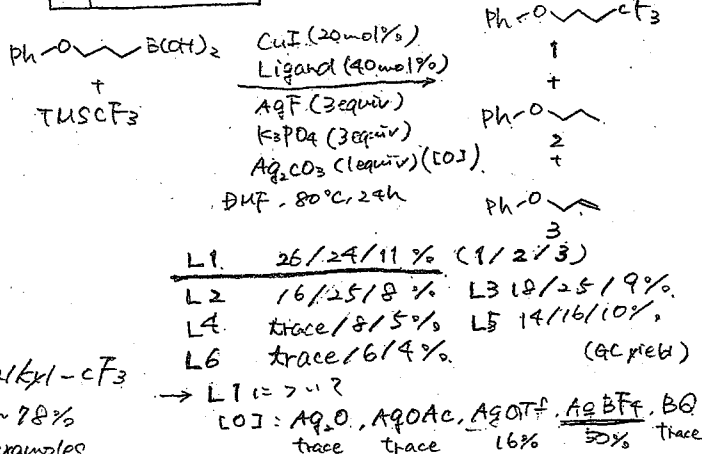 Ph-O B(OH)2
+
TMSCF3
CuI (20mol%)
Ligand (40mol%)
AgF (3equiv)
K3PO4 (3equiv)
Ag2CO3 (1equiv) ([O])
DMF, 80°C, 24h
Ph-O CF3
1
+
Ph-O
2
+
Ph-O
3
L1 26/24/11 % (1/2/3)
L2 16/25/8 % L3 18/25/9%.
L4 trace/8/5% L5 14/16/10%,
L6 trace/6/4%. (GC yield)
alkyl-CF3
~78%
examples
→ L1について
[O]: Ag2O, AgOAc, AgOTf, AgBF4, BQ
trace trace 16% 50% trace